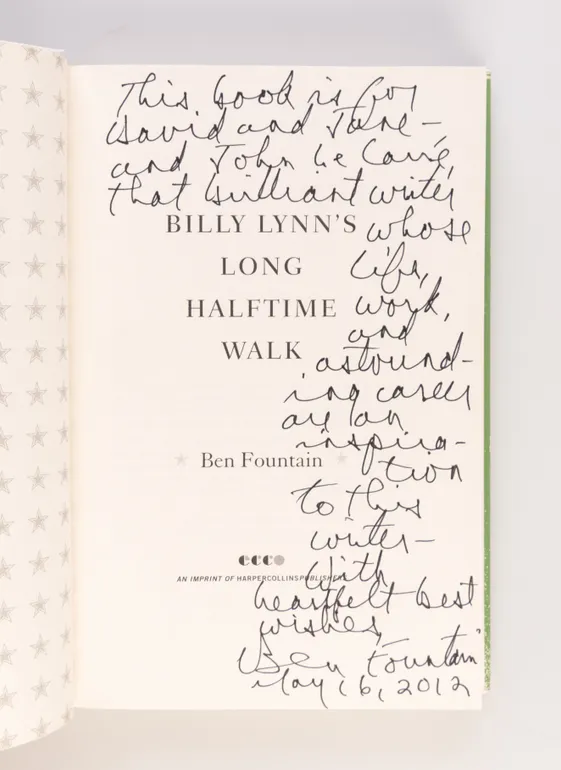 This book is for
David and Jane—
and John le Carré,
that brilliant writer
BILLY LYNN'S whose
LONG life,
HALFTIME work,
and
WALK astound-
ing career
are an
inspira-
Ben Fountain tion
to this
writer—
ecco
With
AN IMPRINT OF HARPERCOLLINSPUBLISHERS
heartfelt best
wishes,
Ben Fountain
May 16, 2012